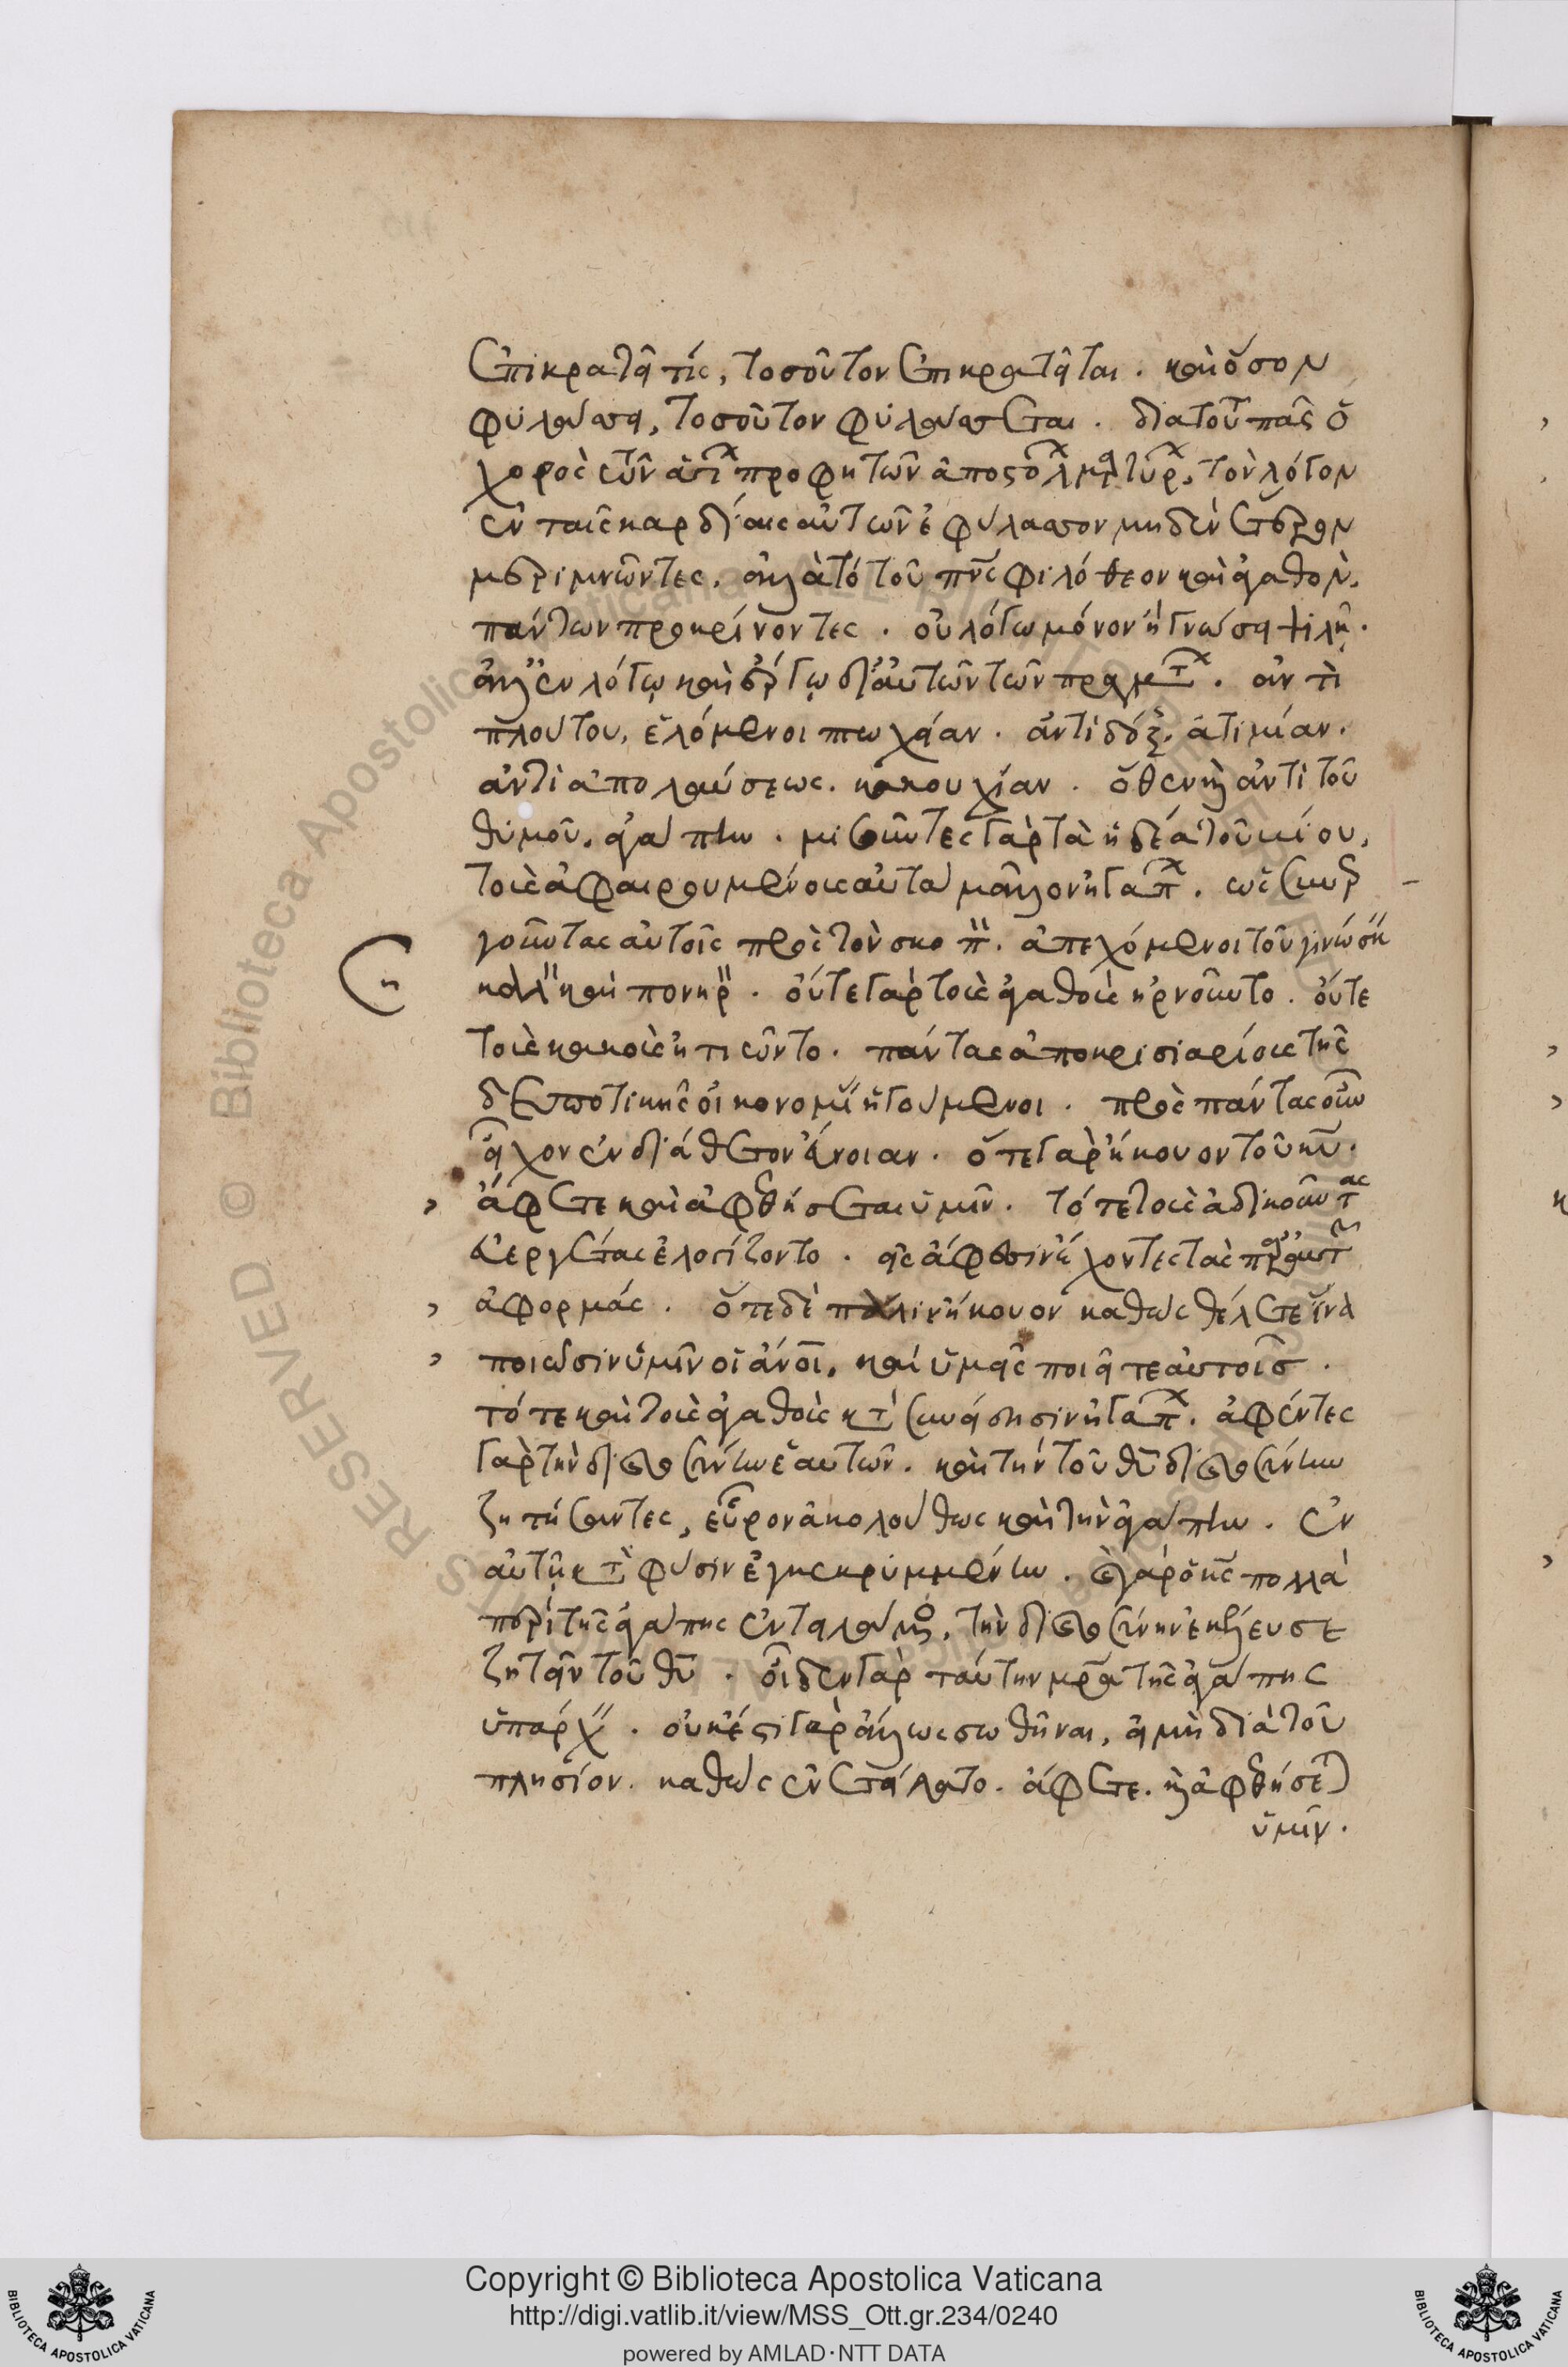 ἐπικρατεῖ τίς, τοσοῦτον ἐπικρατεῖται. καὶ ὅσον
φυλάττει, τοσοῦτον φυλάττεται. διατοῦτ πᾶς ὁ
χορὸς τῶν ἁγί προφητῶν ἀποστόλ μαρτύρ, τὸν λόγον
ἐν ταῖς καρδίαις αὐτῶν ἐφύλαττον μηδὲν ἕτερον
μεριμνῶντες. ἀλλὰ τὸ τοῦ πνς φιλόθεον καὶ ἀγαθὸν,
πάντων προκρίνοντες. οὐ λόγω μόνον ἢ γνώσει ψιλῇ.
ἀλλ' ἐν λόγῳ καὶ ἔργῳ δι' αὐτῶν τῶν πραγμτ. ἀντὶ
πλούτου, ἑλόμενοι πτωχείαν. ἀντὶ δόξ, ἀτιμίαν.
ἀντὶ ἀπολαύσεως. κακουχίαν. ὅθεν καὶ ἀντὶ τοῦ
θυμοῦ, ἀγάπην. μισοῦντες γὰρ τὰ ἡδέα τοῦ βίου,
τοὺς ἀφαιρουμένους αὐτὰ μᾶλλον ἠγάπ. ὡς συνερ
γοῦντας αὐτοῖς πρὸς τὸν σκοπ. ἀπεχόμενοι τοῦ γινώσκ
καλ καὶ πονηρ. οὔτε γὰρ τοὺς ἀγαθοὺς ἠρνοῦντο. οὔτε
τοὺς κακοὺς ἠτιῶντο. πάντας ἀποκρισιαρίους τῆς
δεσποτικῆς οἰκονομί ἡγούμενοι. πρὸς πάντας οὖν
εἶχον ἐνδιάθετον εὔνοιαν. ὅτε γὰρ ἤκουον τοῦ κυ.
ἄφετε καὶ ἀφεθήσεται ὑμῖν. τότε τοὺς ἀδικοῦντας
εὐεργέτας ἐλογίζοντο. εἰς ἄφεσιν ἔχοντες τὰς
ἀφορμάς. ὅτε δὲ πάλιν ἤκουον καθὼς θέλετε ἵνα
ποιῶσιν ὑμῖν οἱ ἄνοι, καὶ ὑμεῖς ποιεῖτε αὐτοῖς.
τότε καὶ τοὺς ἀγαθοὺς κτ συνείδησιν ἠγάπ. ἀφέντες
γὰρ τὴν δικαιοσύνην ἑαυτῶν. καὶ τὴν τοῦ θυ δικαιοσύνην
ζητήσαντες, εὗρον ἀκολούθως καὶ τὴν ἀγάπην. ἐν
αὐτῇ κτ φύσιν ἐγκεκρυμμένην. καὶ γὰρ ὁ κς πολλὰ
περὶ τῆς ἀγάπης ἐντειλάμενος, τὴν δικαιοσύνην ἐκέλευσε
ζητεῖν τοῦ θυ. οἶδεν γὰρ ταύτην μρα τῆς ἀγάπης
ὑπάρχ. οὐκ ἔστι γὰρ ἄλλως σωθῆναι, εἰ μὴ διὰ τοῦ
πλησίον. καθὼς ἐνετείλατο. ἄφετε. καὶ ἀφεθήσεται
ὑμῖν.
Copyright © Biblioteca Apostolica Vaticana
http://digi.vatlib.it/view/MSS_Ott.gr.234/0240
powered by AMLAD·NTT DATA